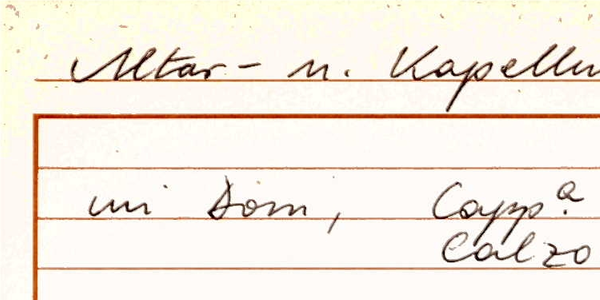 Altar- u. Kapellen
im Dom, Capp.a
Calzo